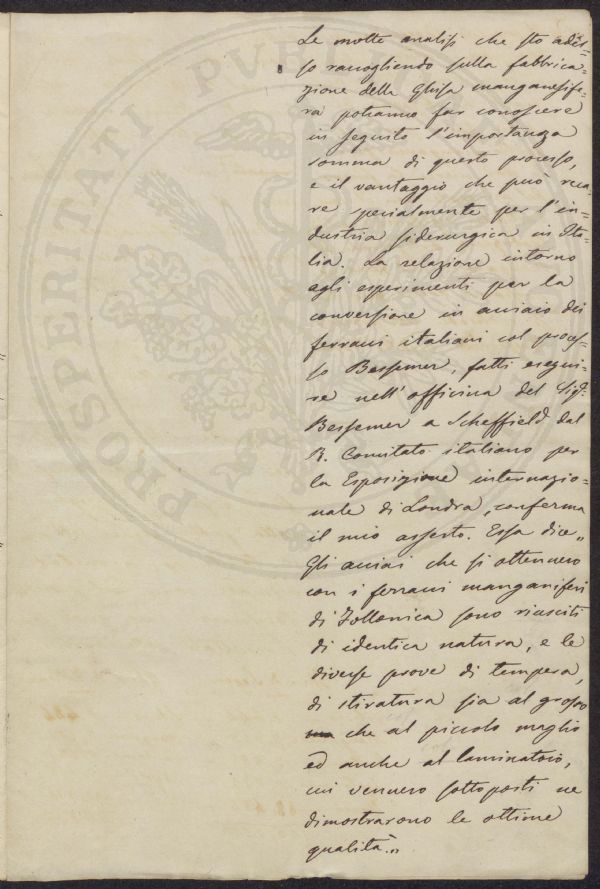 PROSPERITATI PUB
Le molte analisi che sto ades=
so raccogliendo sulla fabbrica=
zione della Ghisa manganesife=
ra potranno far conoscere
in seguito l'importanza
somma di questo processo,
e il vantaggio che può reca=
re specialmente per l'in=
dustria siderurgica in Ita=
lia. La relazione intorno
agli esperimenti per la
conversione in acciaio dei
ferracci italiani col proces=
so Bessemer, fatti esegui=
re nell'officina del Sigr.
Bessemer a Scheffield dal
R. Comitato italiano per
la Esposizione internazio=
nale di Londra, conferma
il mio asserto. Essa dice „
Gli acciai che si ottennero
con i ferracci manganiferi
di Follonica sono riusciti
di identica natura, e le
diverse prove di tempera,
di stiratura sia al grosso
che al piccolo maglio
ed anche al laminatoio,
cui vennero sottoposti ne
dimostrarono le ottime
qualità.„